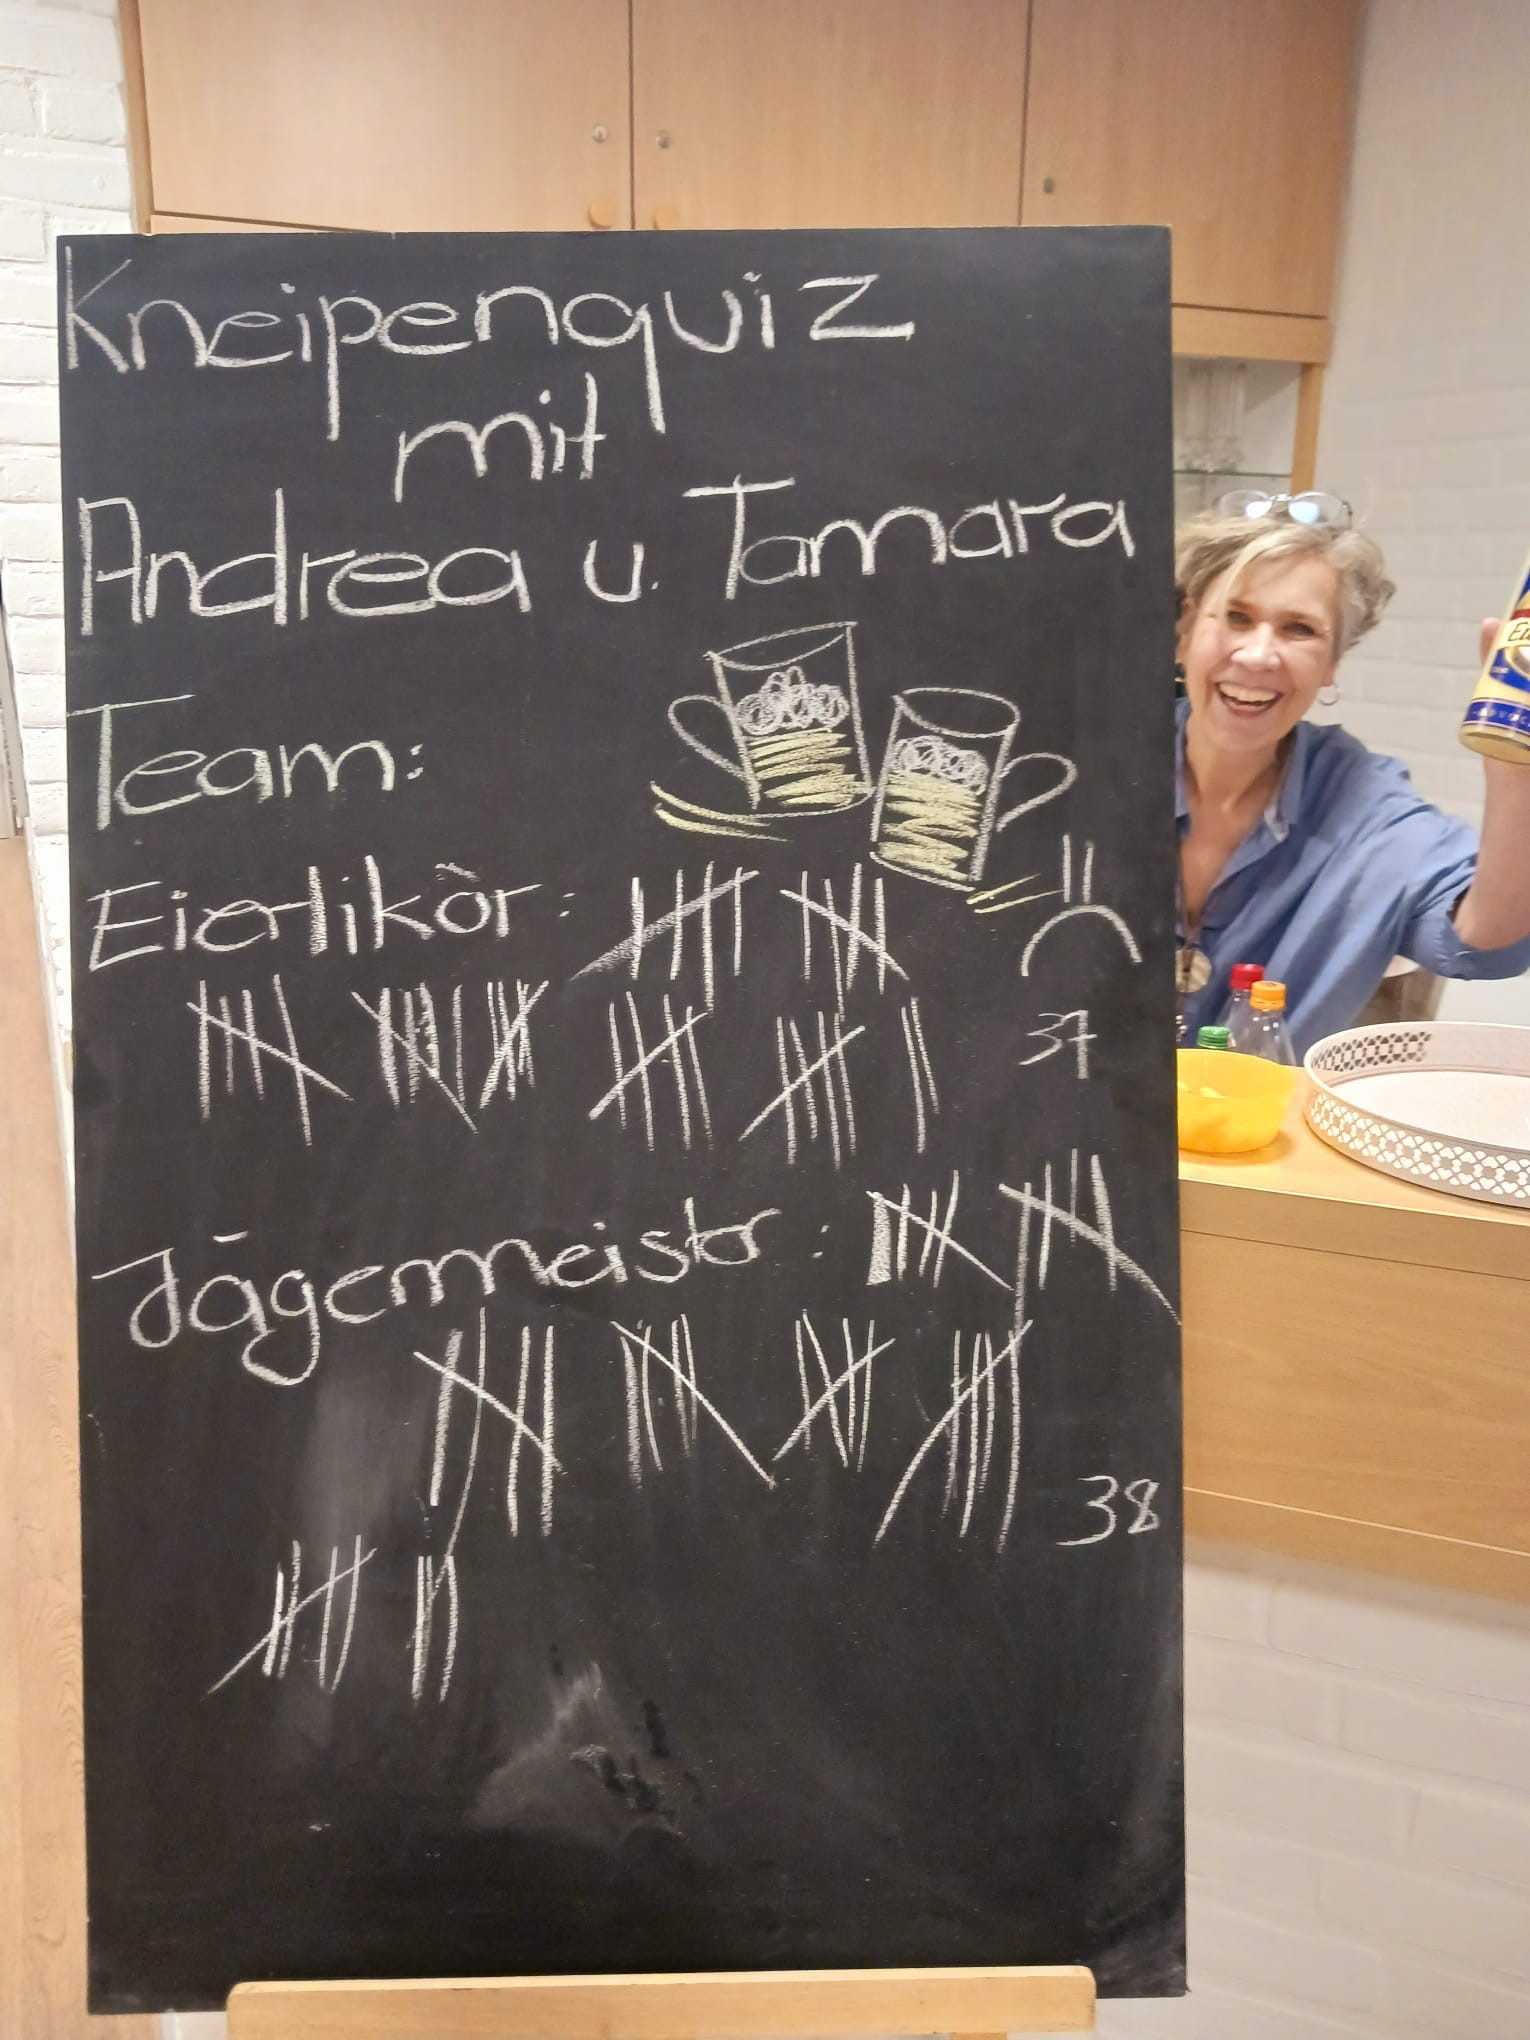 Kneipenquiz
mit
Andrea u. Tamara
Team:
Eierlikör:
37
Jägermeister:
38